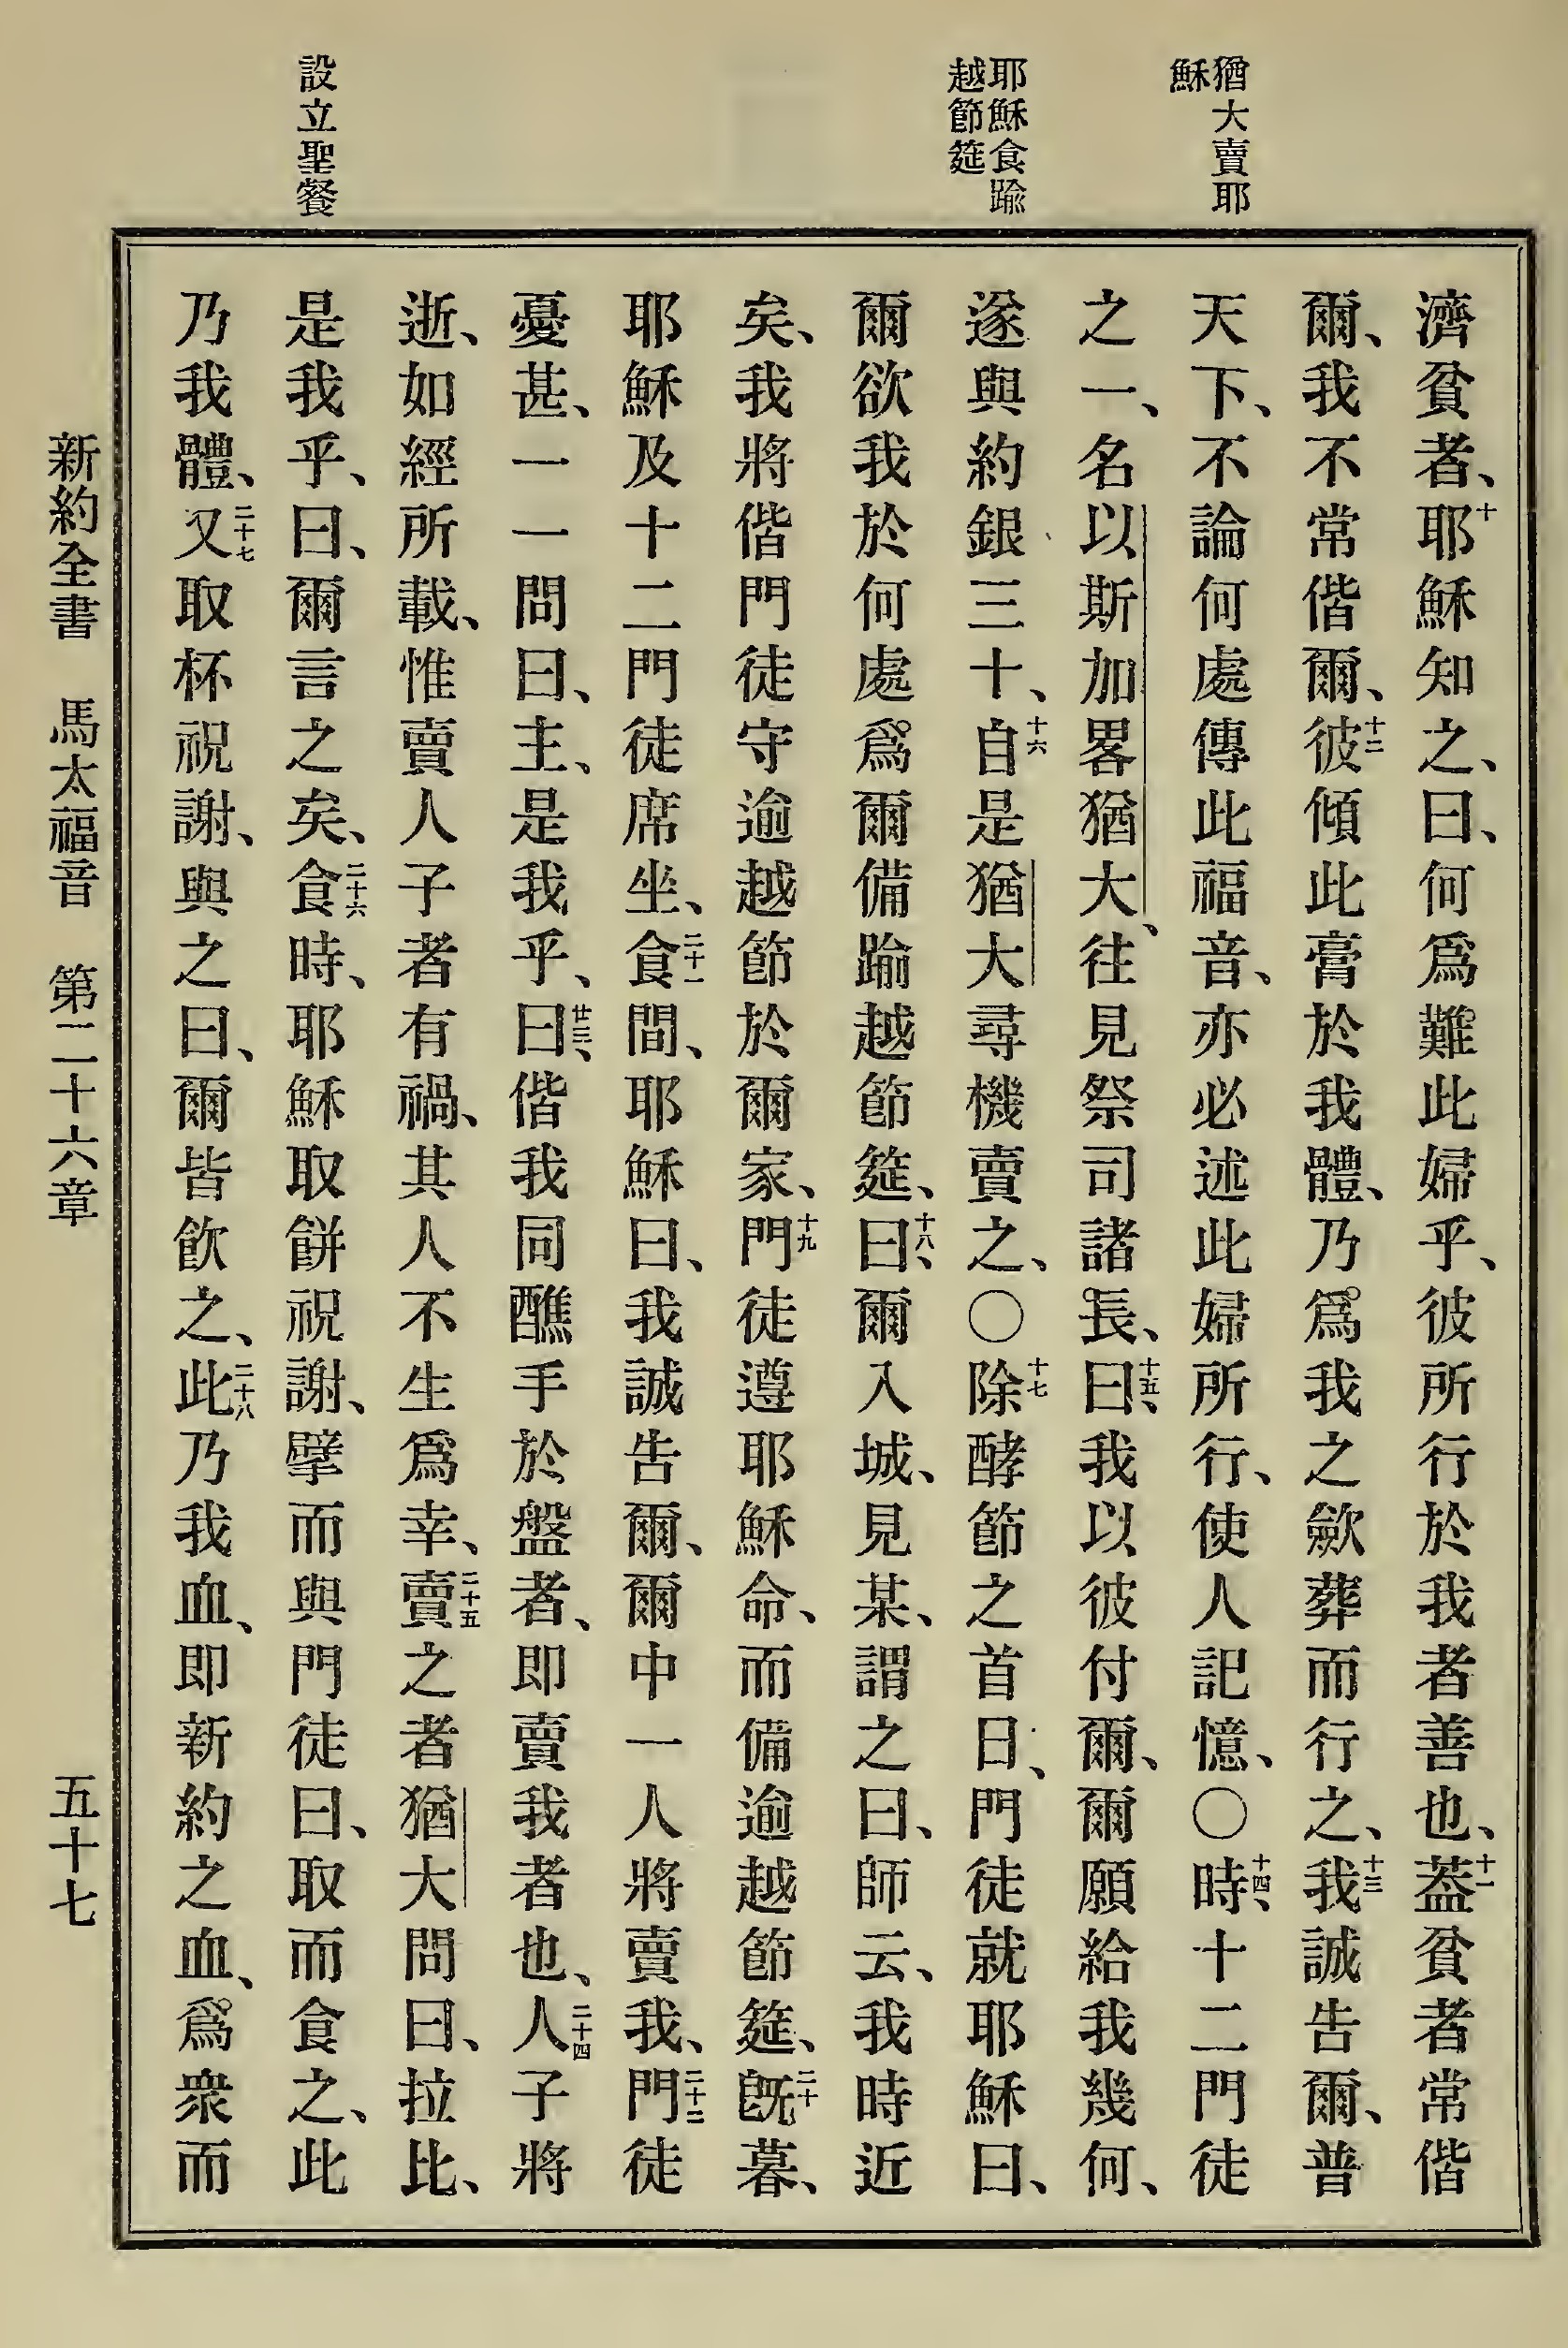 猶大賣耶
穌
耶穌食踰
越節筵
設立聖餐
濟貧者、十耶穌知之、曰、何爲難此婦乎、彼所行於我者善也、十一蓋貧者常偕
爾、我不常偕爾、十二彼傾此膏於我體、乃爲我之歛葬而行之、十三我誠告爾、普
天下、不論何處傳此福音、亦必述此婦所行、使人記憶、〇十四時、十二門徒
之一、名以斯加畧猶大、往見祭司諸長、十五曰、我以彼付爾、爾願給我幾何、
遂與約銀三十、十六自是猶大尋機賣之、〇十七除酵節之首日、門徒就耶穌曰、
爾欲我於何處爲爾備踰越節筵、十八曰、爾入城、見某、謂之曰、師云、我時近
矣、我將偕門徒守逾越節於爾家、十九門徒遵耶穌命、而備逾越節筵、二十旣暮、
耶穌及十二門徒席坐、二十一食間、耶穌曰、我誠告爾、爾中一人將賣我、二十二門徒
憂甚、一一問曰、主、是我乎、廿三曰、偕我同醮手於盤者、即賣我者也、二十四人子將
逝、如經所載、惟賣人子者有禍、其人不生爲幸、二十五賣之者猶大問曰、拉比、
是我乎、曰、爾言之矣、二十六食時、耶穌取餅祝謝、擘而與門徒曰、取而食之、此
乃我體、二十七又取杯祝謝、與之曰、爾皆飲之、二十八此乃我血、即新約之血、爲衆而
新約全書 馬太福音 第二十六章 五十七